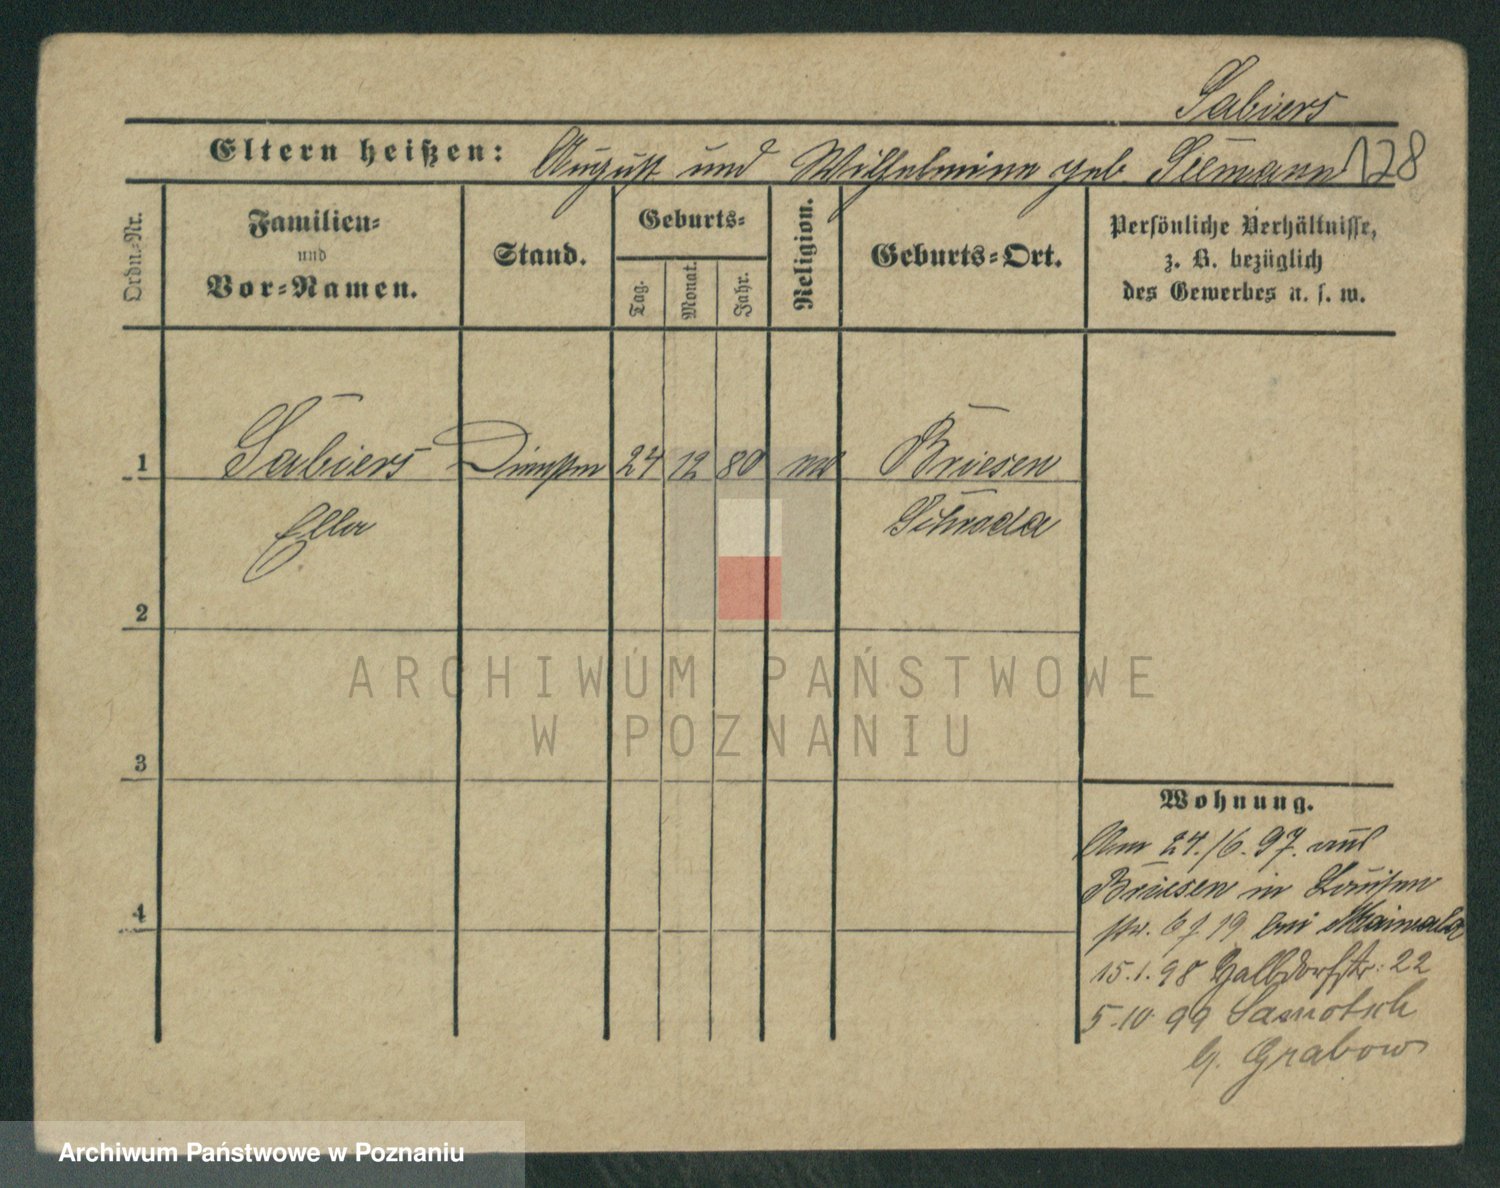 Sabiers
Eltern heißen: August und Wilhelmine geb. Seemann 128
Ordn.-Nr.
Familien-
und
Vor-Namen.
Stand.
Geburts-
Tag.
Monat.
Jahr.
Religion.
Geburts-Ort.
Persönliche Verhältnisse,
z. B. bezüglich
des Gewerbes u. s. w.
1 Sabiers 24 12 80 Briesen
Ella Schroda
2
3
4
Wohnung.
Am 24./6. 97. aus
Briesen in Louisen
str. 19 bei Maiwald
15.1.98 Halbdorfstr. 22
5.10 99 Samotsch
b. Grabow
ARCHIWUM PAŃSTWOWE
W POZNANIU
Archiwum Państwowe w Poznaniu